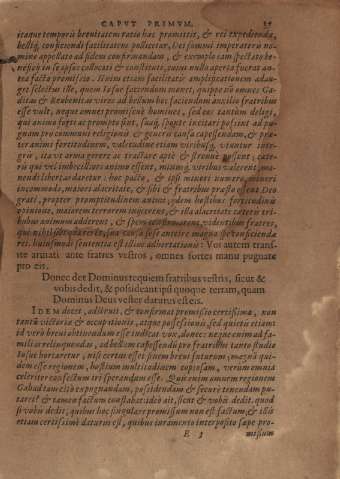 CAPVT PRIMVM. 35
itaque temporis breuitatem ratio hæc promittit, & rei expediendæ,
bellíq; conficiendi facilitatem pollicetur, Dei summi imperatoris no-
mine appellato ad fidem confirmandam, & exemplo iam spectato be-
neficij in se ipsos collocati & constituti,
ctea facta promissio. Etsi etiam facilitatis amplificationem adau-
get selectus ille, quem Iosue faciendum monet, quippe non omnes Ga-
ditas & Reubenitas viros ad bellum hoc faciendum auxilio fratribus
esse vult, neque amnes promiscuè homines, sed ex tantùm deligi,
qui animo forti ac promptu sint, suaq́; sponte incitati possint ad pu-
gnam pro communi religionis & generis causa capessendam, & præ-
ter animi fortitudinem, valetudine etiam viribusq́; vtuntur inte-
gris, ita vt arma ferre ac tractare aptè & strenuè possent: cæte-
ris qui vel imbecilliore animo essent, minusq́; viribus valerent, ma-
nendi libertas daretur: hoc pacto, & ipsi minori numero, minore
incommodo, maiore alacritate, & sibi & fratribus præsto essent Deo
grati, propter promptitudinem animi: idem hostibus fortitudinis
opinione, maiorem terrorem inijcerent, & illa alacritate cæteris tri-
bubus animum adderent, & spem confirmarent, videntibus fratres,
qui nihil
rei. huiusmodi sententia est illius adhortationis: Vos autem trans-
ite armati ante fratres vestros, omnes fortes manu pugnate
pro eis.
Donec det Dominus requiem fratribus vestris, sicut &
vobis dedit, & possideant ipsi quoque terram, quam
Dominus Deus vester daturus est eis.
IDEM docet, adstruit, & confirmat promissio certissima, non
tantùm victoriæ & occupationis, atque possessionis, sed quietis etiam:
id verò breui obtinendum esse indicat vox, donec: neque enim ad fa-
milias relinquendas, ad bellum capessendū pro fratribus tanto studio
Iosue hortaretur, nisi certus esset finem breui futurum: magnā qui-
dem esse regionem, hostium multitudinem copiosam, verùm omnia
celeriter confectum iri sperandum esse. Quis enim vnicam regionem
Galaad tam citò expugnandam, possidendam & securè tenendam pu-
taret? & tamen factum constabat: ideò ait, sicut & vobis dedit. quod
si vobis dedit, quibus hoc singulare promissum non est factum, & illis
etiam certissimè daturus est, quibus iuramento interposito sæpe pro-
E 3 missum